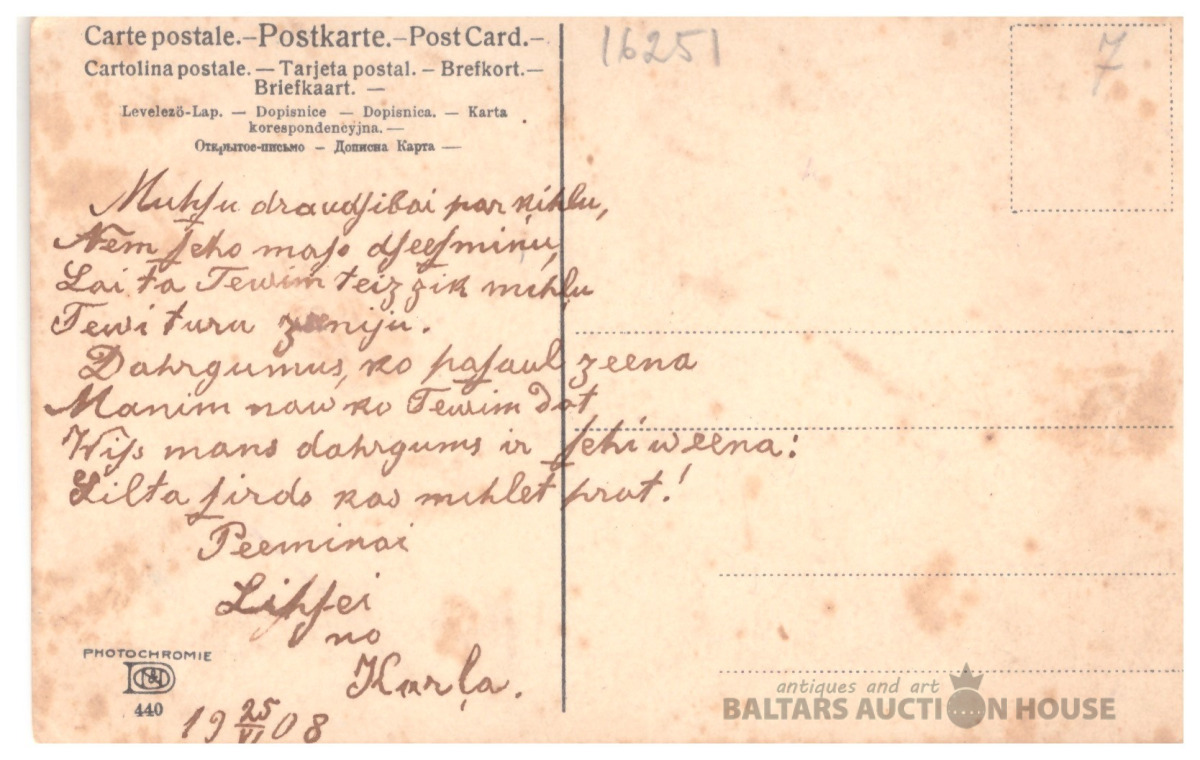 Carte postale.—Postkarte.—Post Card.—
Cartolina postale. — Tarjeta postal. — Brefkort.—
Briefkaart. —
Levelező-Lap. — Dopisnice — Dopisnica. — Karta
korespondencyjna. —
Открытое-письмо — Дописна Карта —
16251
7
Muhsu draudsibai par kihlu,
Nem scho maso dseesminu,
Lai ta Tewim teiz zik mihlu
Tewi turu zeeniju.
Dahrgumus, ko pasaul zeena
Manim naw ko Tewim dot,
Wiss mans dahrgums ir schi weena:
Silta sirds kas mihlet prot!
Peeminai
Lihsei
no
Karļa.
PHOTOCHROMIE
440
19 25/VI 08
antiques and art
BALTARS AUCTION HOUSE